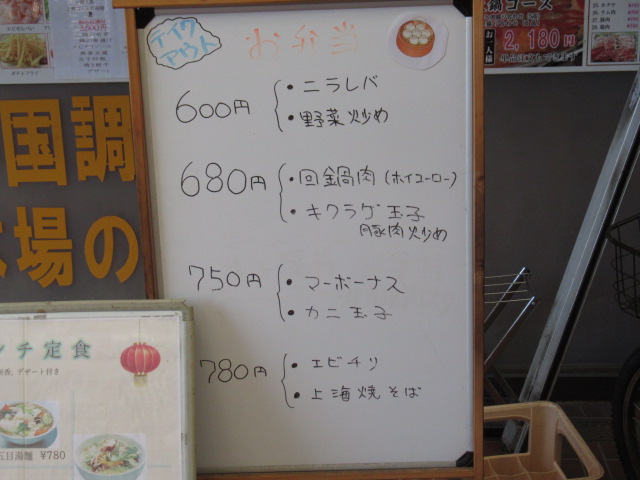 テイク
アウト
お弁当
600円
・ニラレバ
・野菜炒め
680円
・回鍋肉(ホイコーロー)
・キクラゲ玉子
豚肉炒め
750円
・マーボーナス
・カニ玉子
780円
・エビチリ
・上海焼そば
国調
場の
ンチ定食
デザート付き
五目湯麺 ¥780
鍋コース
2,180円
ポテトフライ